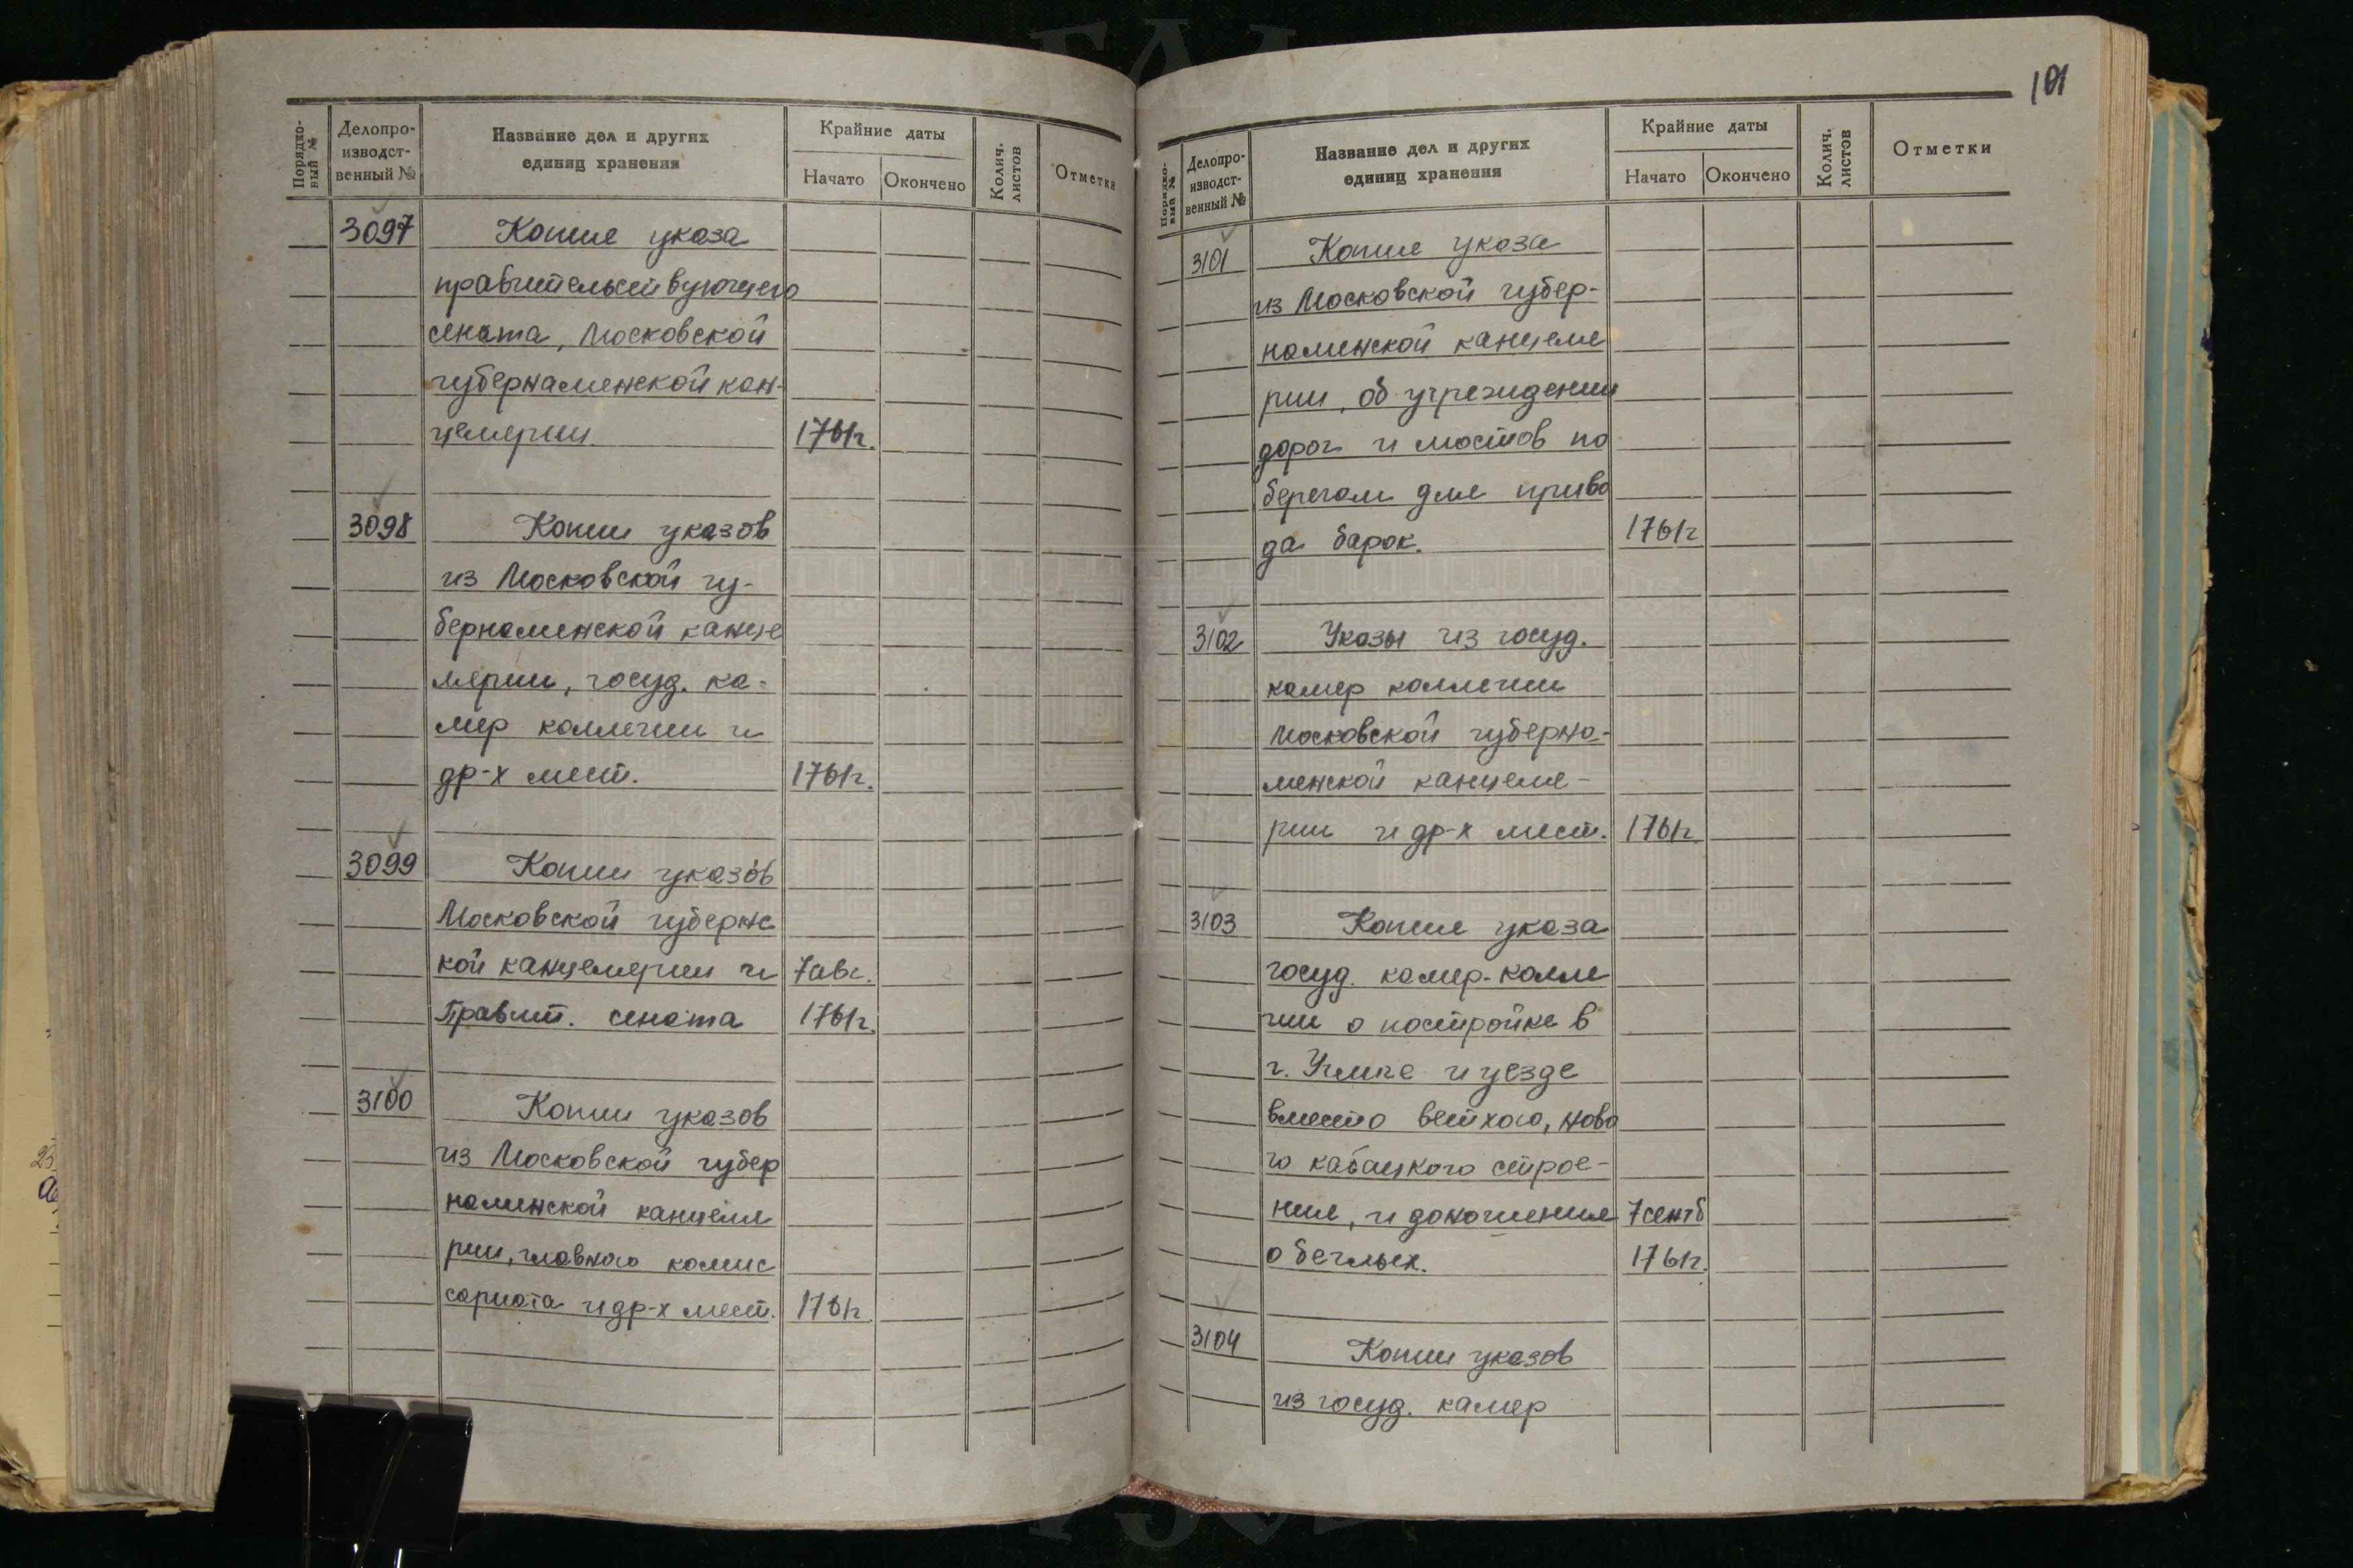 101
Порядко-
вый №
Делопро-
изводст-
венный №
Название дел и других
единиц хранения
Крайние даты
Начато
Окончено
Колич.
листов
Отметки
3097 Копия указа
правительствующего
сената, Московской
губернаменской кан-
целярии 1761г.
3098 Копии указов
из Московской гу-
бернаменской канце
лярии, госуд. ка-
мер коллегии и
др-х мест. 1761г.
3099 Копии указов
Московской губернс
кой канцелярии и 7 авг.
Правит. сената 1761г.
3100 Копии указов
из Московской губер
наменской канцеля
рии, главного комис
сариата и др-х мест. 1761г.
Порядко-
вый №
Делопро-
изводст-
венный №
Название дел и других
единиц хранения
Крайние даты
Начато
Окончено
Колич.
листов
Отметки
3101 Копия указа
из Московской губер-
наменской канцеля
рии, об учреждении
дорог и мостов по
берегам для приво
да барок. 1761г
3102 Указы из госуд.
камер коллегии
Московской губерна-
менской канцеля-
рии и др-х мест. 1761г.
3103 Копия указа
госуд. камер-колле
гии о постройке в
г. Угличе и уезде
вместо ветхого, ново
го кабацкого строе-
ния, и доношения 7 сентб
о беглых. 1761г.
3104 Копии указов
из госуд. камер